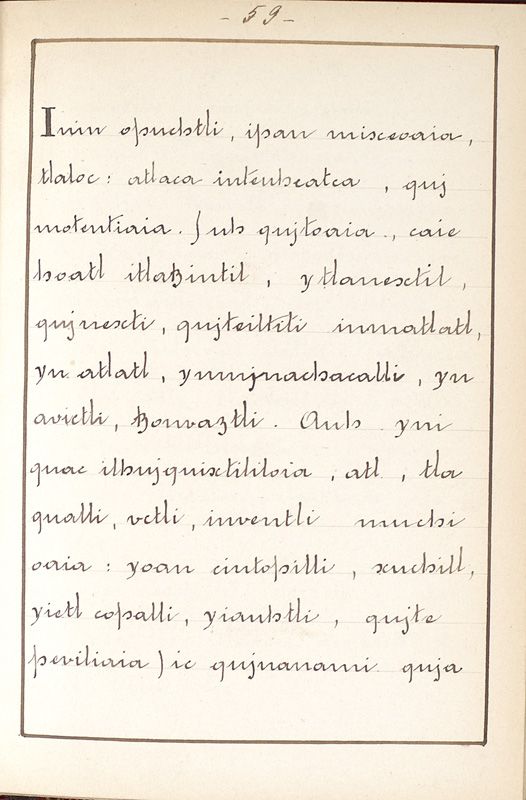 - 59 -
Inin opuchtli, ipan misceoaia,
tlaloc: atlaca inteuheatca, quj
motentiaia. Juh qujtoaia., caie
hoatl itlaȥintil, ytlanextil,
qujnexti, qujteiltiti inmatlatl,
yn atlatl, ynmjnachacalli, yn
avictli, ȥonvaztli. Auh yni
quac ilhujquixtililoia, atl, tla
qualli, vctli, inventli muchi
oaia: yoan cintopilli, xuchill,
yietl copalli, yiauhtli, qujte
peviliaia) ic qujnanami quja